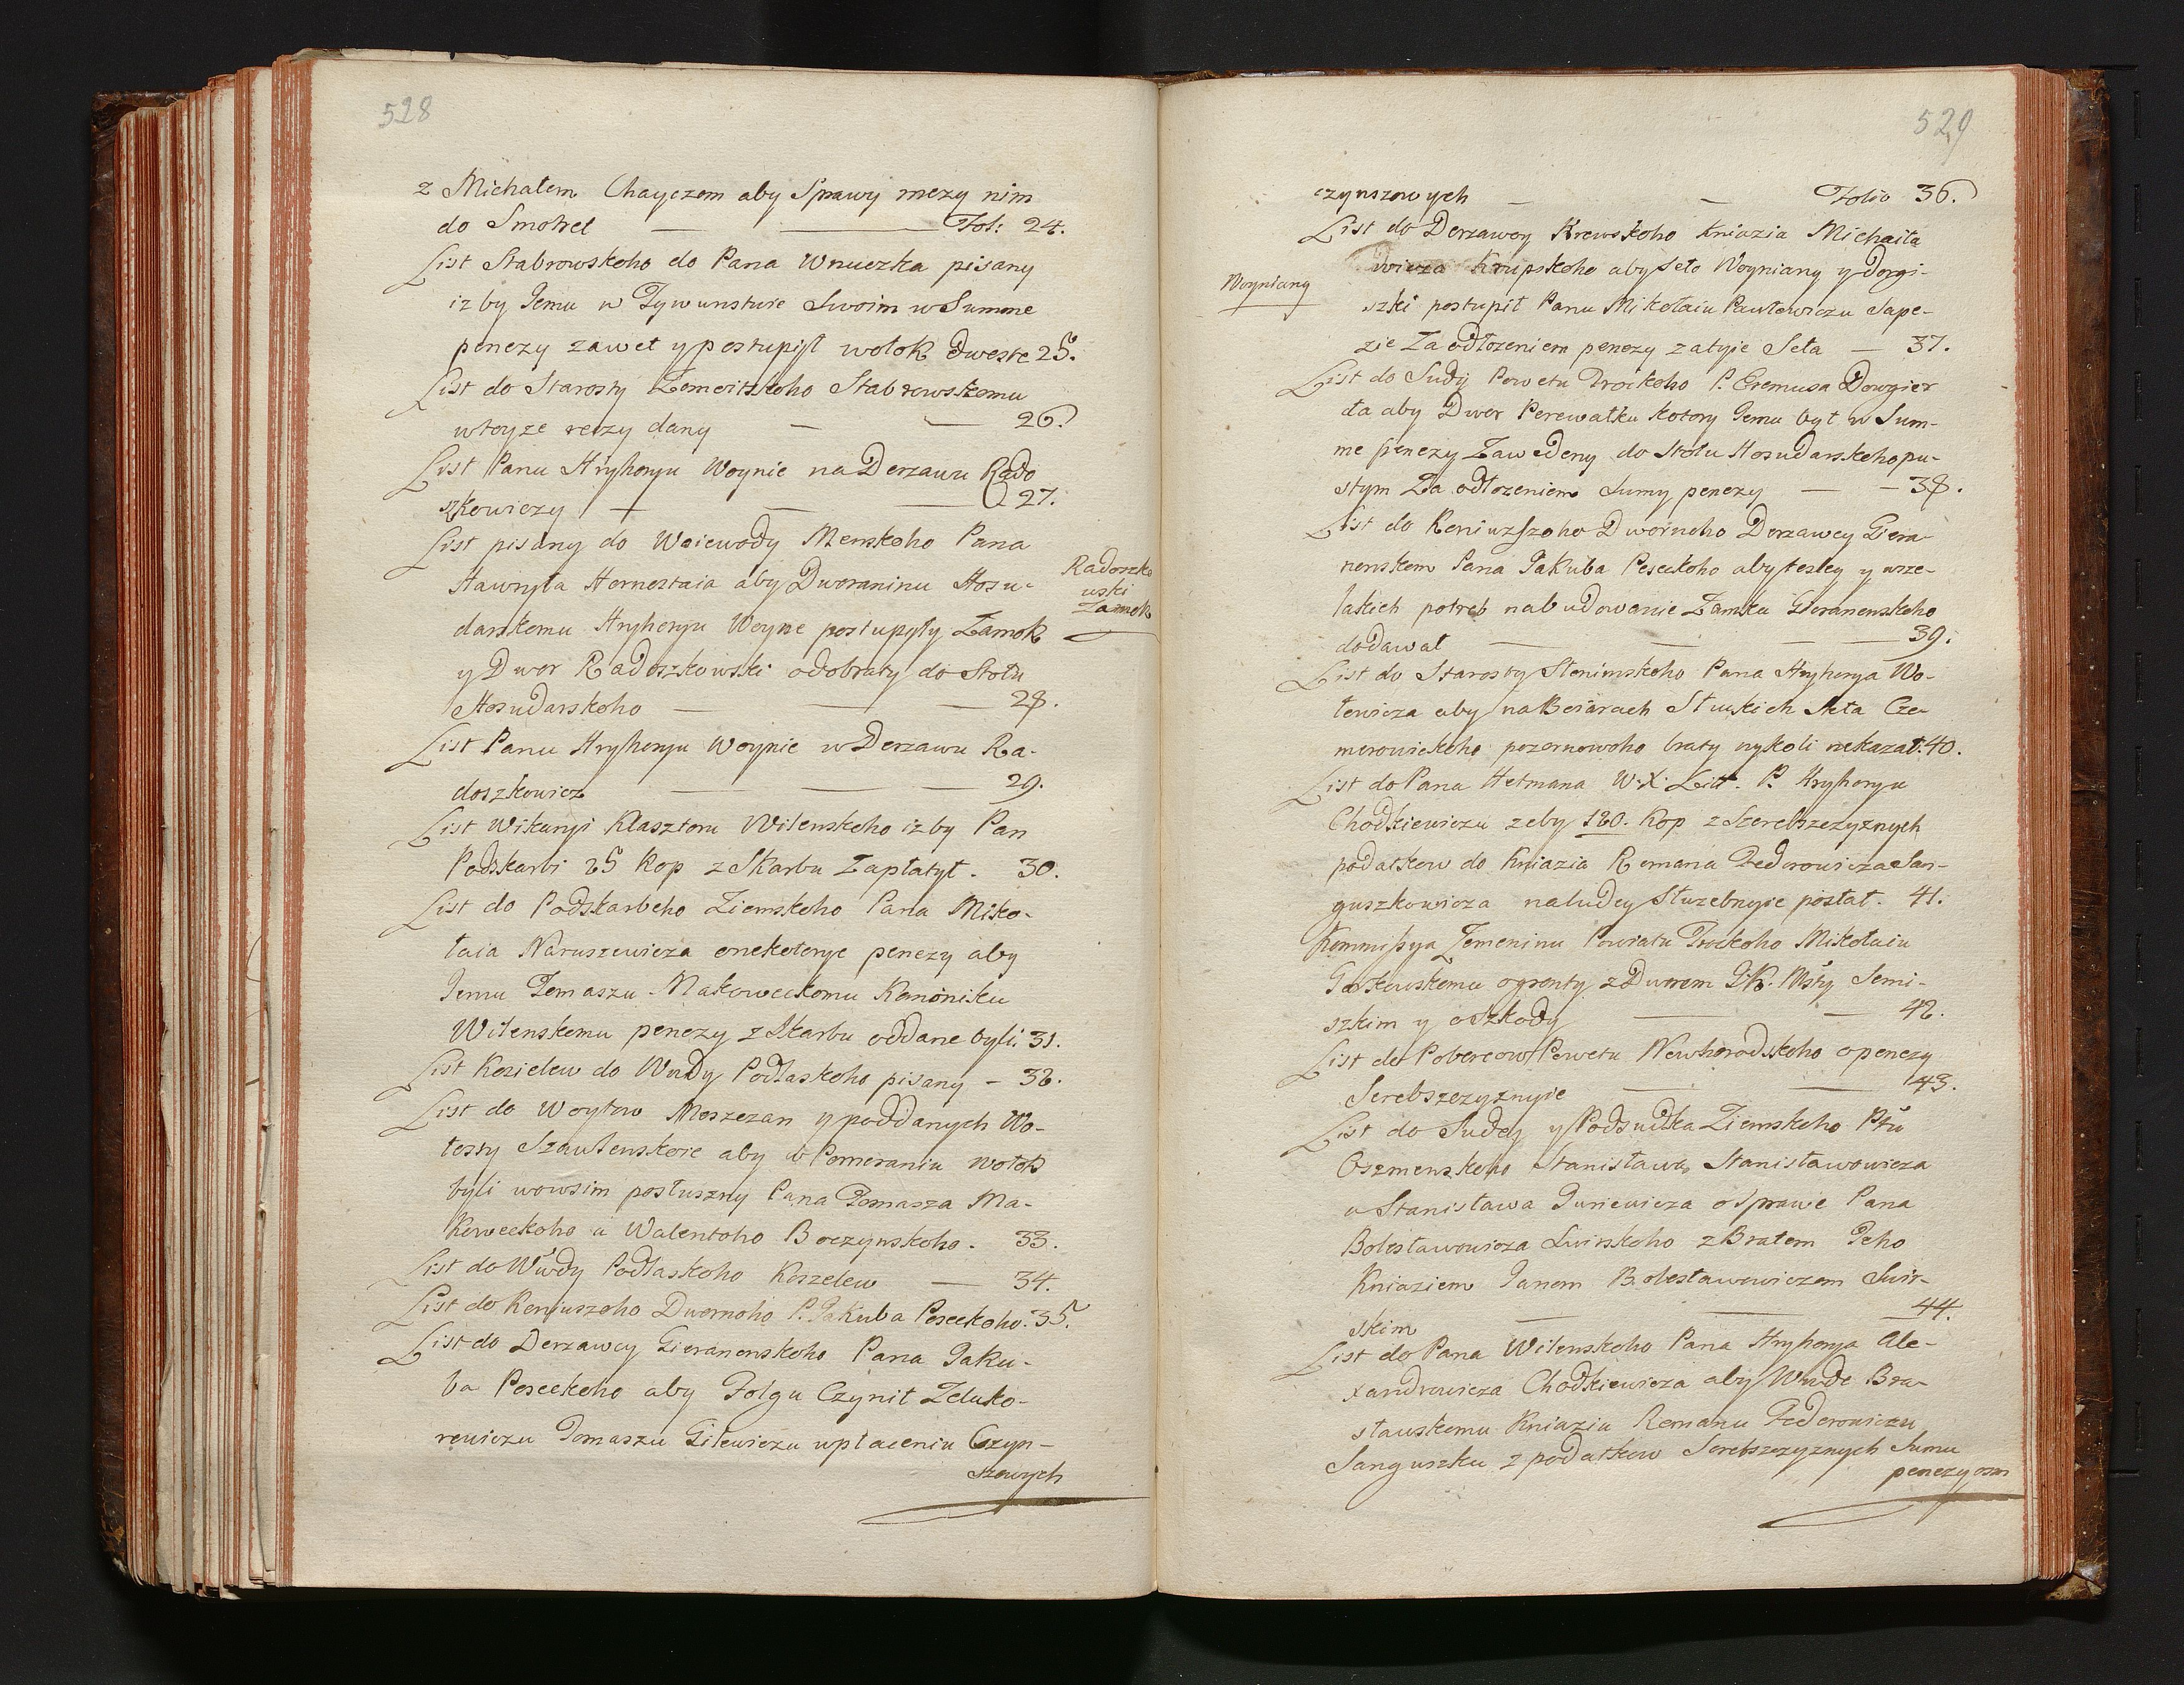 528
z Michałem Chayczem aby Sprawy mezy nim
do Smotrel — — Fol: 24.
List Stabrowskoho do Pana Wnuczka pisany
iz by Jemu w Tywunstwie Swoim w Summe
penezy zawet y postupił wołok dweste 25.
List do Starosty Zomoitskoho Stabrowskomu
wtoyze reczy dany — — 26.
List Panu Hryhoryu Woynie na Derzawu Rado
szkowiczy — — — 27.
List pisany do Woiewody Menskoho Pana
Hawryła Hornostaia aby Dworaninu Hosu-
darskomu Hryhoryu Woyne postupyły Zamok
y Dwor Radoszkowski odobraty do Stołu
Hosudarskoho — — — 28.
Radoszko
wski
Zamok
List Panu Hryhoryu Woynie w Derzawu Ra-
doszkowicz — — — 29.
List Wikaryi Klasztoru Wilenskoho iz by Pan
Podskarbi 25 Kop z Skarbu Zapłatył. 30.
List do Podskarbeho Ziemskoho Pana Miko-
łaia Naruszewicza onekotorye penezy aby
Jemu Tomaszu Makoweckomu Kanoniku
Wilenskomu penezy z Skarbu oddane byli. 31.
List Kozielew do Wwdy Podlaskoho pisany – 32.
List do Woytow Moszczan y poddanych Wo-
łosty Szawlenskoie aby w Pomeraniu wołok
byli wowsim posłuszny Pana Tomasza Ma-
koweckoho a Walentoho Boczynskoho. 33.
List do Wwdy Podlaskoho Koszelew — 34.
List do Koniuszoho Dwornoho P. Jakuba Peseckoho. 35.
List do Derzawcy Gieranenskoho Pana Jaku-
ba Peseckoho aby Folgu Czynił Zeluko-
rewiczu Tomaszu Gilewiczu wpłaceniu Czyn-
szowych
529
czynszowych — — Folio 36.
List do Derzawcy Krewskoho Kniazia Michaiła
dwicza Krupskoho aby Seło Woyniany y Dorgi-
Woyniany
szki postupił Panu Mikołaiu Pawłowiczu Sape-
zie Za odłozeniem penezy zatyie Seła — 37.
List do Sudij Powetu Trockoho P. Eremusa Dowgier
da aby Dwor Perewałku kotory Jemu był w Sum-
me penezy Zawedeny do Stołu Hosudarskoho pu-
stym Za odłozeniem Sumy penezy — – 38.
List do Koniuszoho Dwornoho Derzawcy Giera-
nenskom Pana Jakuba Peseckoho aby tesley y wsze-
lakich potreb nabudowanie Zamku Gieranenskoho
dodawał — — — 39.
List do Starosty Slonimskoho Pana Hryhorya Wo-
łowicza aby na Boiarach Słuckich Seła Cze-
merowickoho pozernowoho braty nykoli nekazał. 40.
List do Pana Hetmana W. X. Litt. P. Hryhorya
Chodkiewicza zeby 120. Kop z Szerebszczyznych
podatkow do Kniazia Romana Fedorowicza San-
guszkowicza naludey Służebnyie posłał. 41.
Kommissya Zemeninu Powiatu Trockoho Mikołaiu
ogronty z Dworem J.K. Msty Semi-
szkim y oszkody — — 42.
List do Poborcow Powetu Nowhorodskoho o penezy
Serebszczyznyie — — 43.
List do Sudej y Podsudka Ziemskoho Ptu
Oszmenskoho Stanisława Stanisławowicza
a Stanisława Juriewicza o Sprawe Pana
Bolesławowicza Swirskoho z Bratem Jeho
Kniaziem Janem Bolesławowiczem Swir-
skim — — 44.
List do Pana Wilenskoho Pana Hryhorya Ale-
xandrowicza Chodkiewicza aby Wwde Bra-
sławskomu Kniaziu Romanu Fedorowiczu
Sanguszku z podatkow Serebszczyznych Sumu
penezy osm